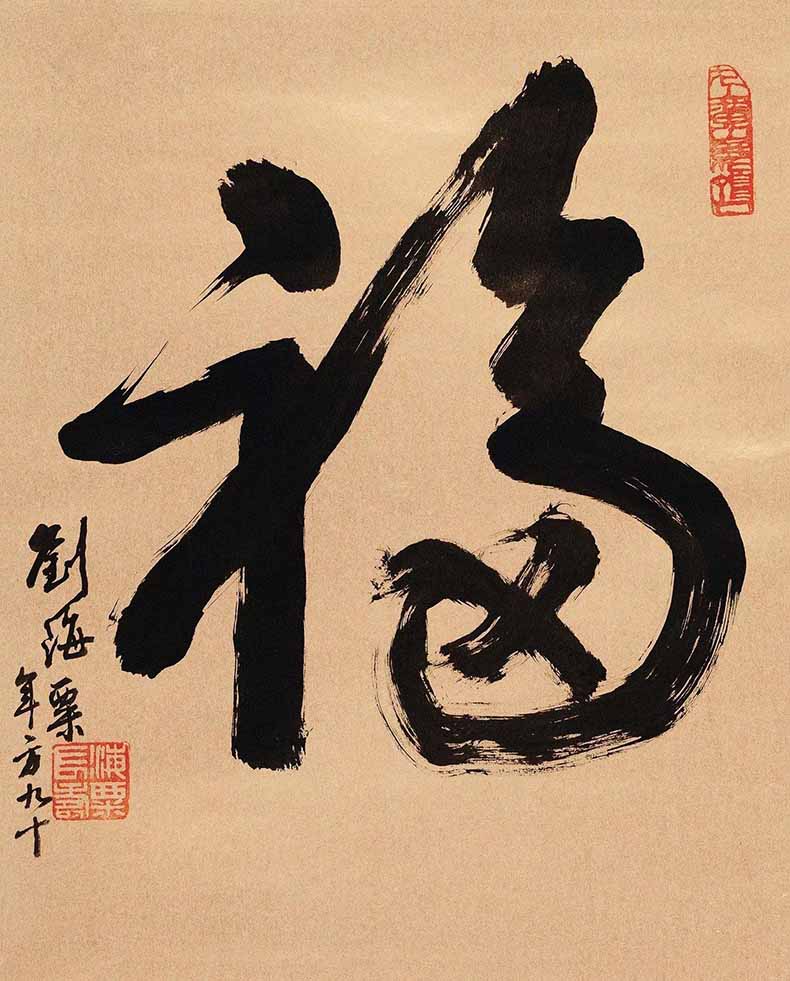 福
劉海粟
年方九十
海粟長壽